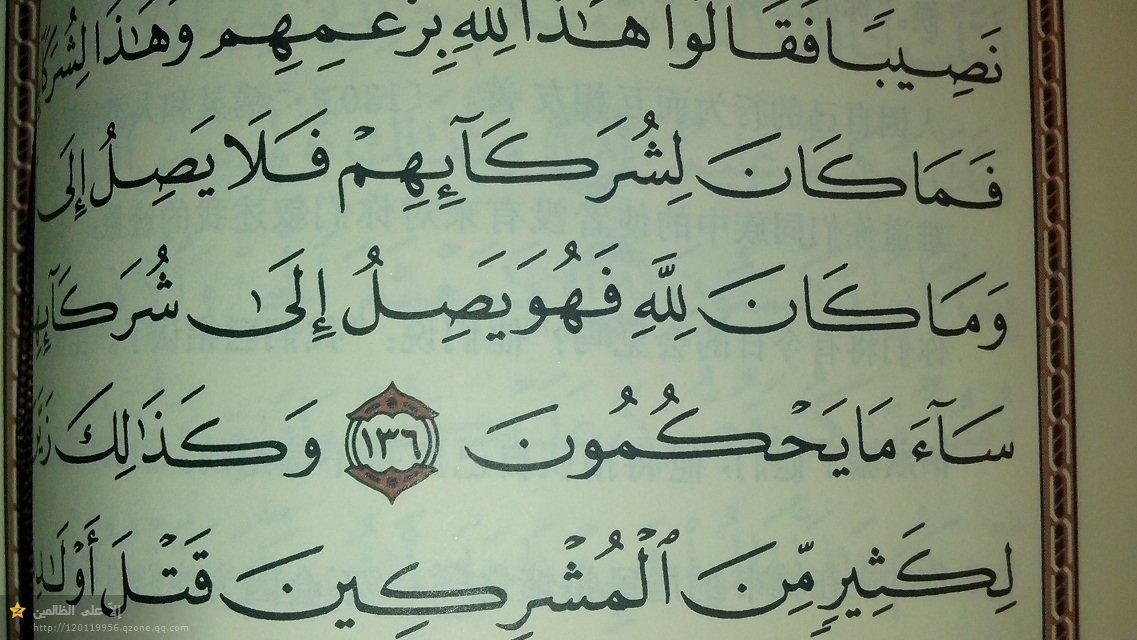 نَصِيبًا فَقَالُوا هَٰذَا لِلَّهِ بِزَعْمِهِمْ وَهَٰذَا
فَمَا كَانَ لِشُرَكَآئِهِمْ فَلَا يَصِلُ إِلَى
وَمَا كَانَ لِلَّهِ فَهُوَ يَصِلُ إِلَىٰ
سَآءَ مَا يَحْكُمُونَ ١٣٦ وَكَذَٰلِكَ
لِكَثِيرٍ مِّنَ ٱلْمُشْرِكِينَ قَتْلَ
على الظالمين
http://120119956.qzone.qq.com